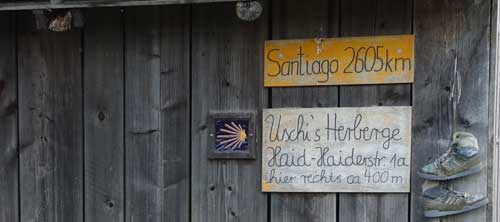 Santiago 2605km
Uschi's Herberge
Haid-Haiderstr. 1a
hier rechts ca. 400m